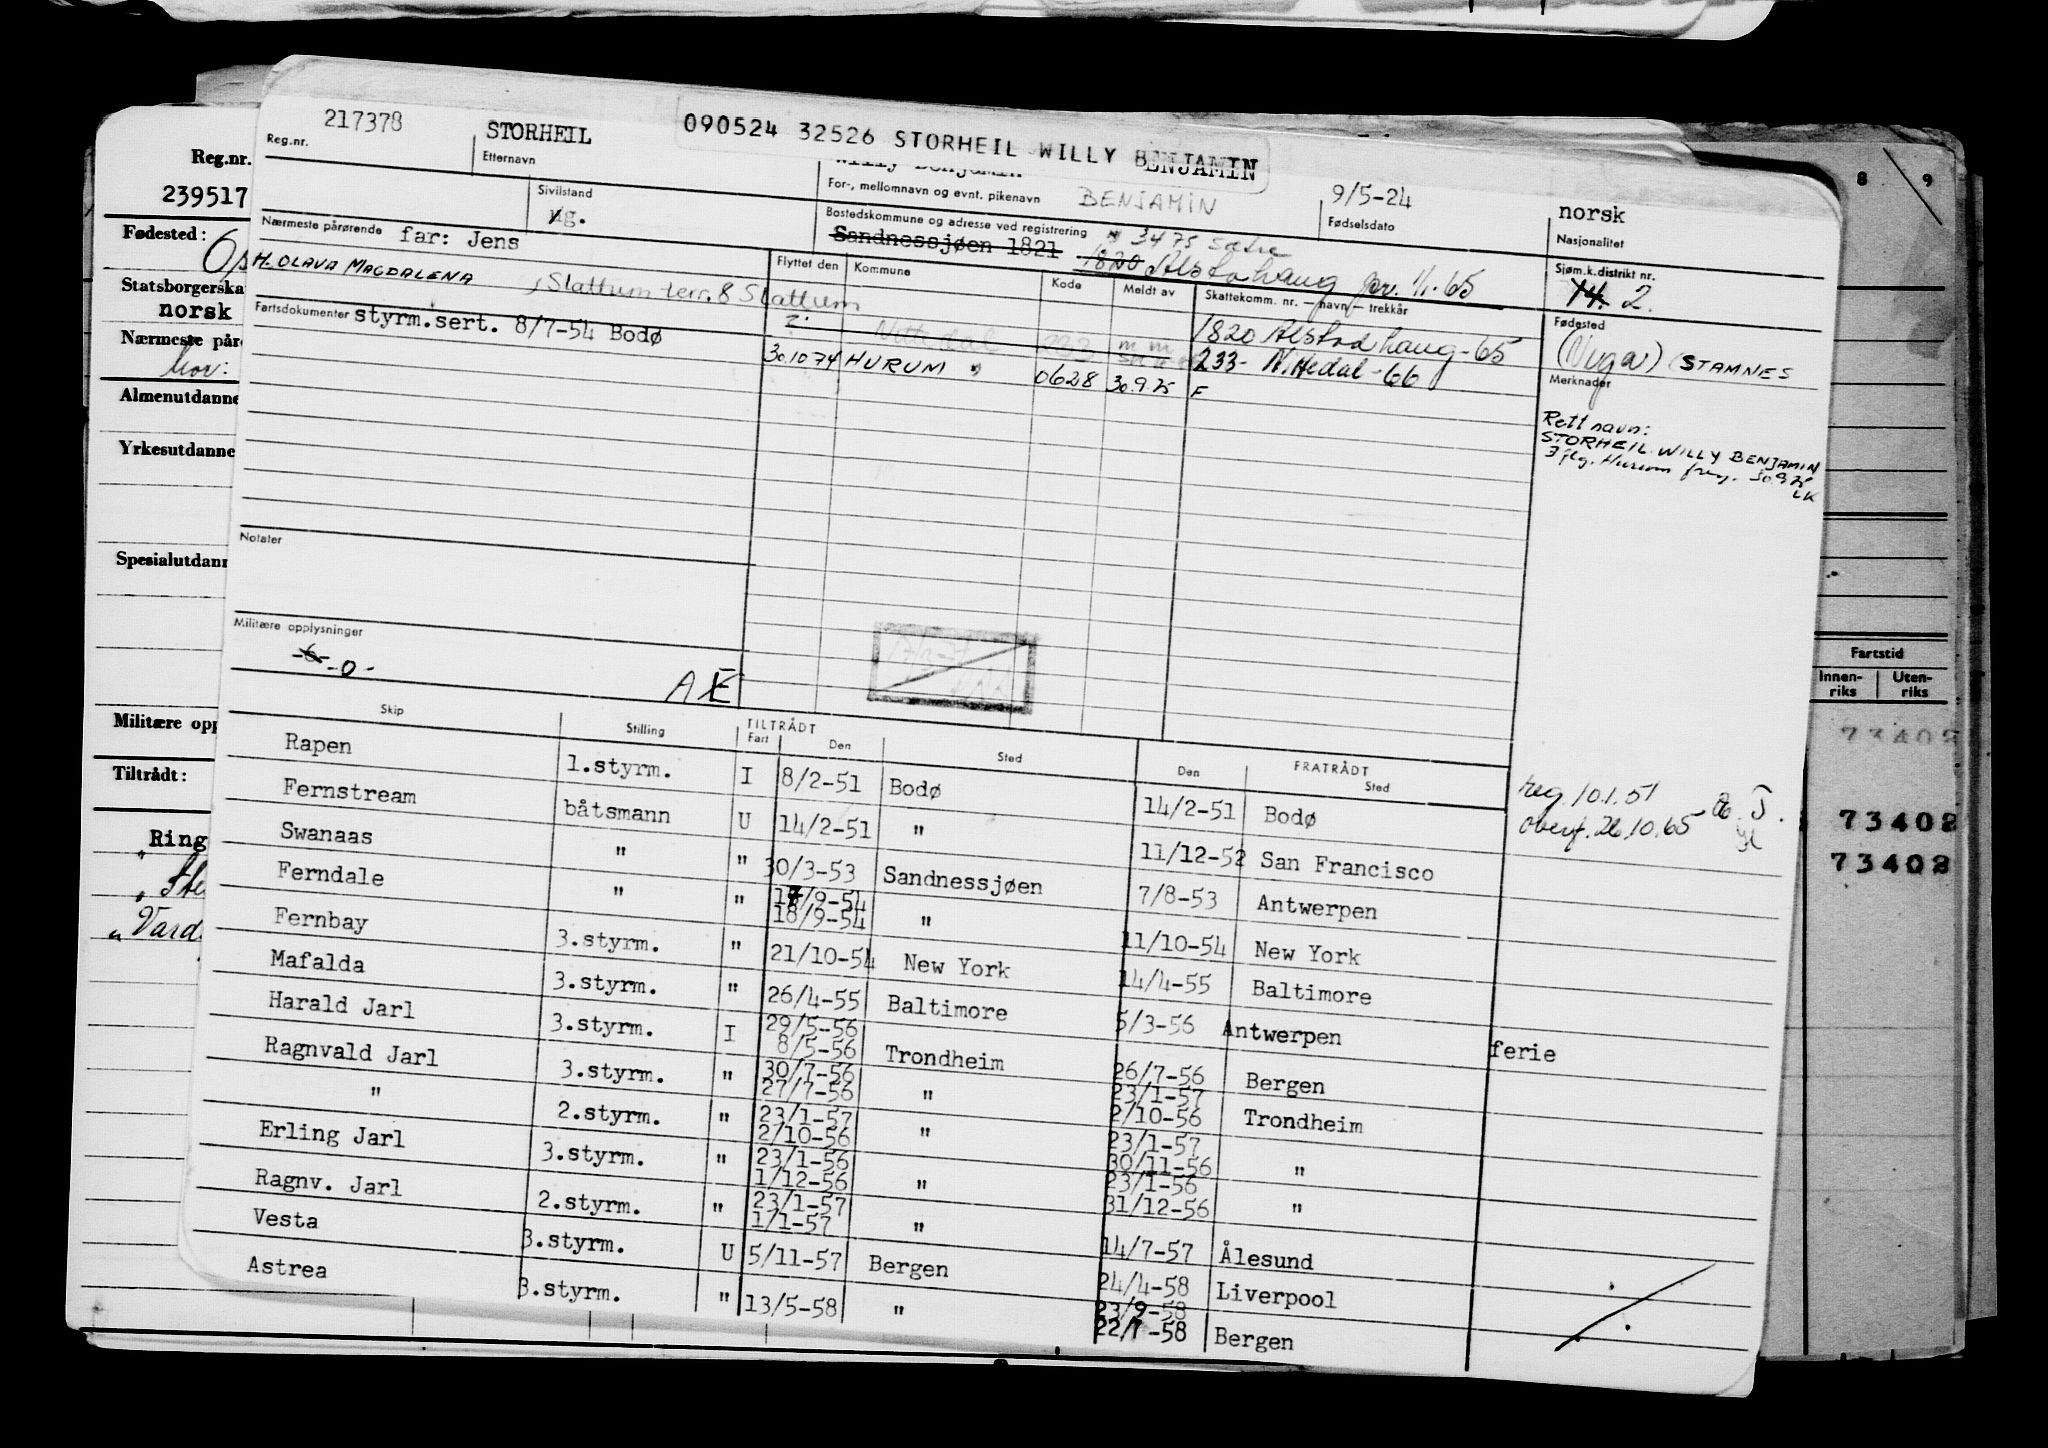 217378
STORHEIL
090524 32526 STORHEIL WILLY BENJAMIN
Reg.nr.
Etternavn
Willy Benjamin
For-, mellomnavn og evnt. pikenavn
BENJAMIN
9/5-24
Fødselsdato
norsk
Nasjonalitet
Sivilstand
ug.
Bostedskommune og adresse ved registrering
3475 Sætre
Sandnessjøen 1821
1820 Alstahaug pr. 1/1-65
Sjøm.k.distrikt nr.
14. 2.
Nærmeste pårørende far: Jens
H. OLAVA MAGDALENA, Slattum terr. 8 Slattum
Flyttet den
Kommune
Kode
Meldt av
Skattekomm. nr. — navn — trekkår
Fødested
(Nuga) (STAMNES
Fartsdokumenter styrm.sert. 8/7-54 Bodø
Nittedal 233
1820 Alstadhaug-65
30.10.74 HURUM 0628 30.9.75
233- Nittedal-66
F
Merknader
Rett navn:
STORHEIL WILLY BENJAMIN
Iflg. Hurum freg. 30.9.75
LK
Notater
Militære opplysninger
-6- -0-
AE
Skip
Stilling
TILTRÅDT
Fart
Den
Sted
Den
FRATRÅDT
Sted
Rapen 1.styrm. I 8/2-51 Bodø 14/2-51 Bodø
reg 10.1.51
overf. 26.10.65
Fernstream båtsmann U 14/2-51 " 11/12-52 San Francisco
Swanaas " " 30/3-53 Sandnessjøen 7/8-53 Antwerpen
Ferndale " " 17/9-54
18/9-54 " 11/10-54 New York
Fernbay 3.styrm. " 21/10-54 New York 14/4-55 Baltimore
Mafalda 3.styrm. " 26/4-55 Baltimore 5/3-56 Antwerpen ferie
Harald Jarl 3.styrm. I 29/5-56
8/5-56 Trondheim 26/7-56 Bergen
Ragnvald Jarl 3.styrm. " 30/7-56
27/7-56 " 23/1-57
2/10-56 Trondheim
" 2.styrm. " 23/1-57
2/10-56 " 23/1-57
30/11-56 "
Erling Jarl 3.styrm. " 23/1-56
1/12-56 " 23/1-56
31/12-56 "
Ragnv. Jarl 2.styrm. " 23/1-57
1/1-57 " 14/7-57 Ålesund
Vesta 3.styrm. U 5/11-57 Bergen 24/4-58 Liverpool
Astrea 3.styrm. " 13/5-58 " 23/9-58
22/7-58 Bergen
Reg.nr.
239517
Fødested:
Statsborgerska
norsk
Nærmeste påre
Almenutdanne
Yrkesutdanne
Spesialutdann
Militære opp
Tiltrådt:
"Ring
"Vard
8 9
Fartstid
Innen-
riks
Uten-
riks
73402
73402
73402